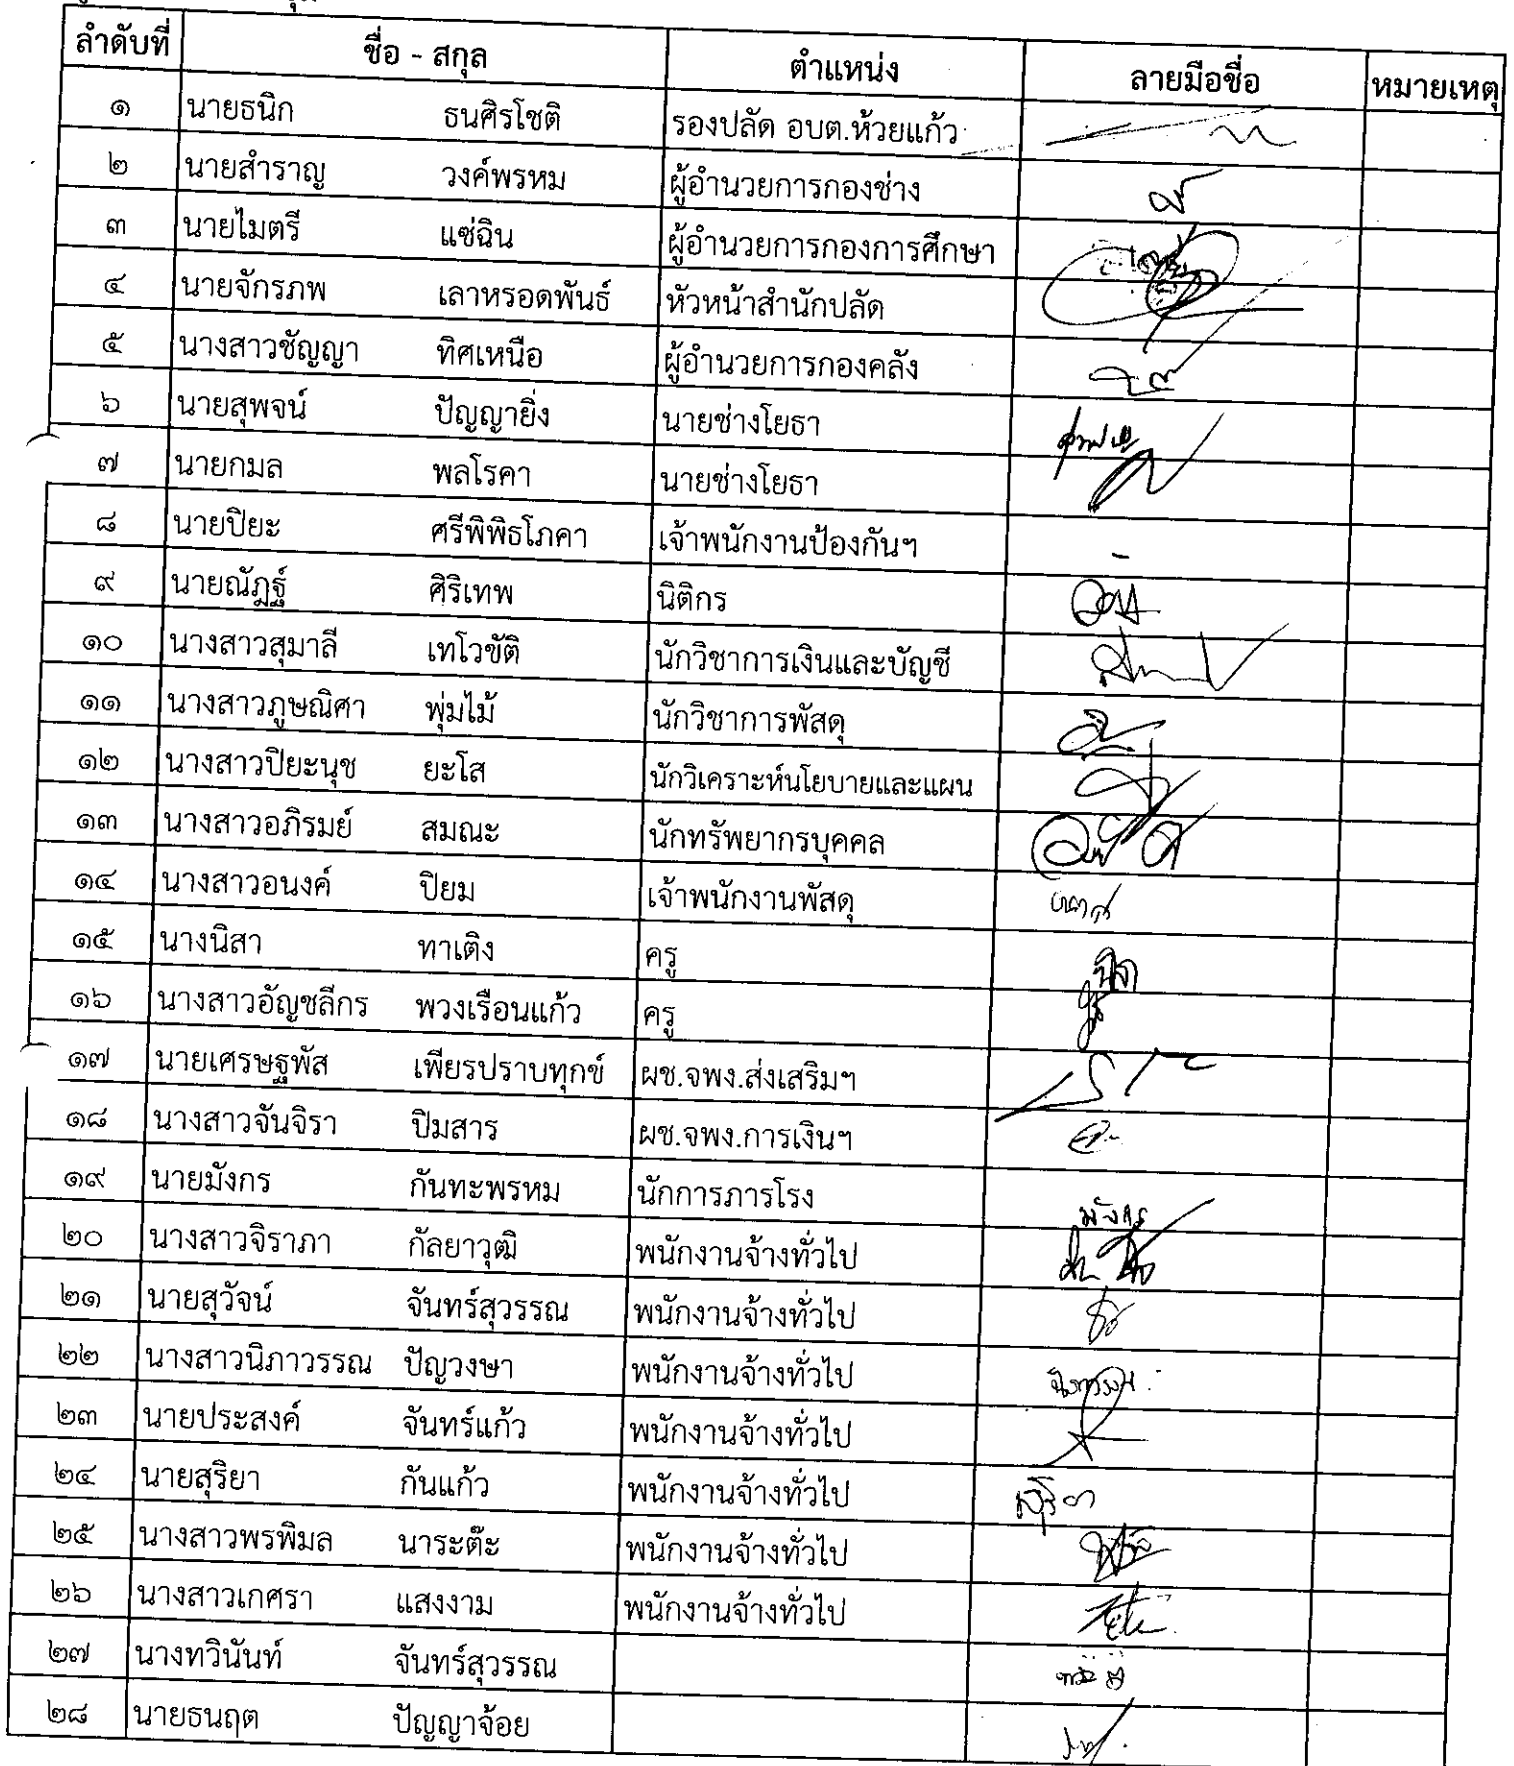 ลำดับที่ ชื่อ - สกุล ตำแหน่ง ลายมือชื่อ หมายเหตุ
๑ นายธนิก ธนศิรโชติ รองปลัด อบต.ห้วยแก้ว
๒ นายสำราญ วงค์พรหม ผู้อำนวยการกองช่าง
๓ นายไมตรี แซ่ฉิน ผู้อำนวยการกองการศึกษา
๔ นายจักรภพ เลาหรอดพันธ์ หัวหน้าสำนักปลัด
๕ นางสาวชัญญา ทิศเหนือ ผู้อำนวยการกองคลัง
๖ นายสุพจน์ ปัญญายิ่ง นายช่างโยธา
๗ นายกมล พลโรคา นายช่างโยธา
๘ นายปิยะ ศรีพิพิธโภคา เจ้าพนักงานป้องกันฯ -
๙ นายณัฏฐ์ ศิริเทพ นิติกร
๑๐ นางสาวสุมาลี เทโวขัติ นักวิชาการเงินและบัญชี
๑๑ นางสาวภูษณิศา พุ่มไม้ นักวิชาการพัสดุ
๑๒ นางสาวปิยะนุช ยะโส นักวิเคราะห์นโยบายและแผน
๑๓ นางสาวอภิรมย์ สมณะ นักทรัพยากรบุคคล
๑๔ นางสาวอนงค์ ปิยม เจ้าพนักงานพัสดุ
๑๕ นางนิสา ทาเติง ครู
๑๖ นางสาวอัญชลีกร พวงเรือนแก้ว ครู
๑๗ นายเศรษฐพัส เพียรปราบทุกข์ ผช.จพง.ส่งเสริมฯ
๑๘ นางสาวจันจิรา ปิมสาร ผช.จพง.การเงินฯ
๑๙ นายมังกร กันทะพรหม นักการภารโรง มังกร
๒๐ นางสาวจิราภา กัลยาวุฒิ พนักงานจ้างทั่วไป
๒๑ นายสุวัจน์ จันทร์สุวรรณ พนักงานจ้างทั่วไป
๒๒ นางสาวนิภาวรรณ ปัญวงษา พนักงานจ้างทั่วไป นิภาวรรณ
๒๓ นายประสงค์ จันทร์แก้ว พนักงานจ้างทั่วไป
๒๔ นายสุริยา กันแก้ว พนักงานจ้างทั่วไป สุริยา
๒๕ นางสาวพรพิมล นาระต๊ะ พนักงานจ้างทั่วไป
๒๖ นางสาวเกศรา แสงงาม พนักงานจ้างทั่วไป
๒๗ นางทวินันท์ จันทร์สุวรรณ
๒๘ นายธนฤต ปัญญาจ้อย